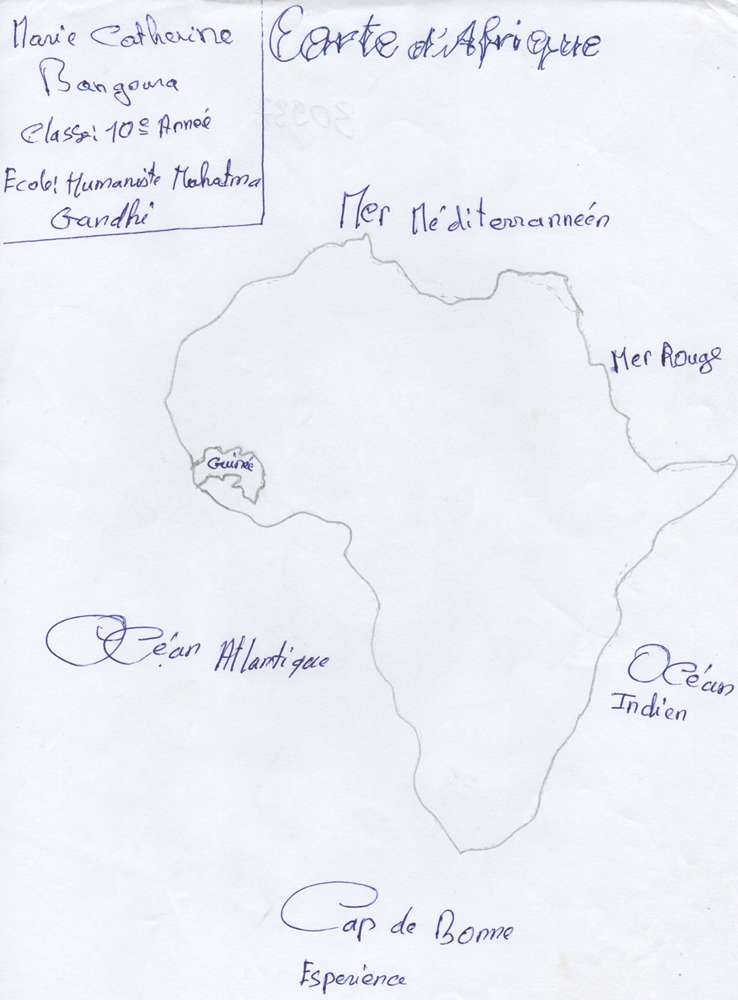 Marie Catherine
Bangoura
Classe: 10e Année
Ecole: Humaniste Mahatma
Gandhi
Carte d'Afrique
Mer Méditerrannéen
Mer Rouge
Guinée
Océan Atlantique
Océan
Indien
Cap de Bonne
Esperience